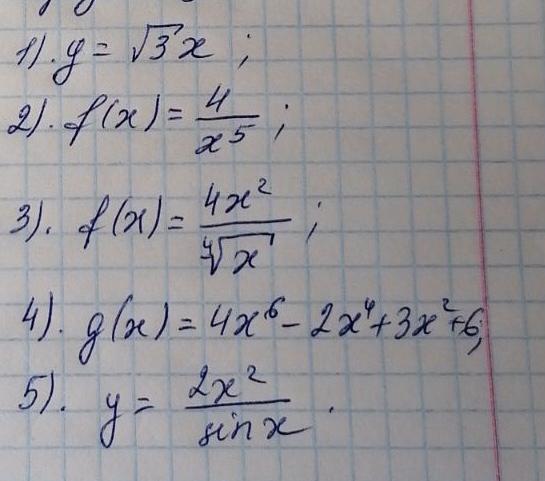 1). y = √3x ;
2). f(x) = 4/x⁵ ;
3). f(x) = 4x²/⁴√x ;
4). g(x) = 4x⁶ - 2x⁴ + 3x² + 6;
5). y = 2x²/sin x .